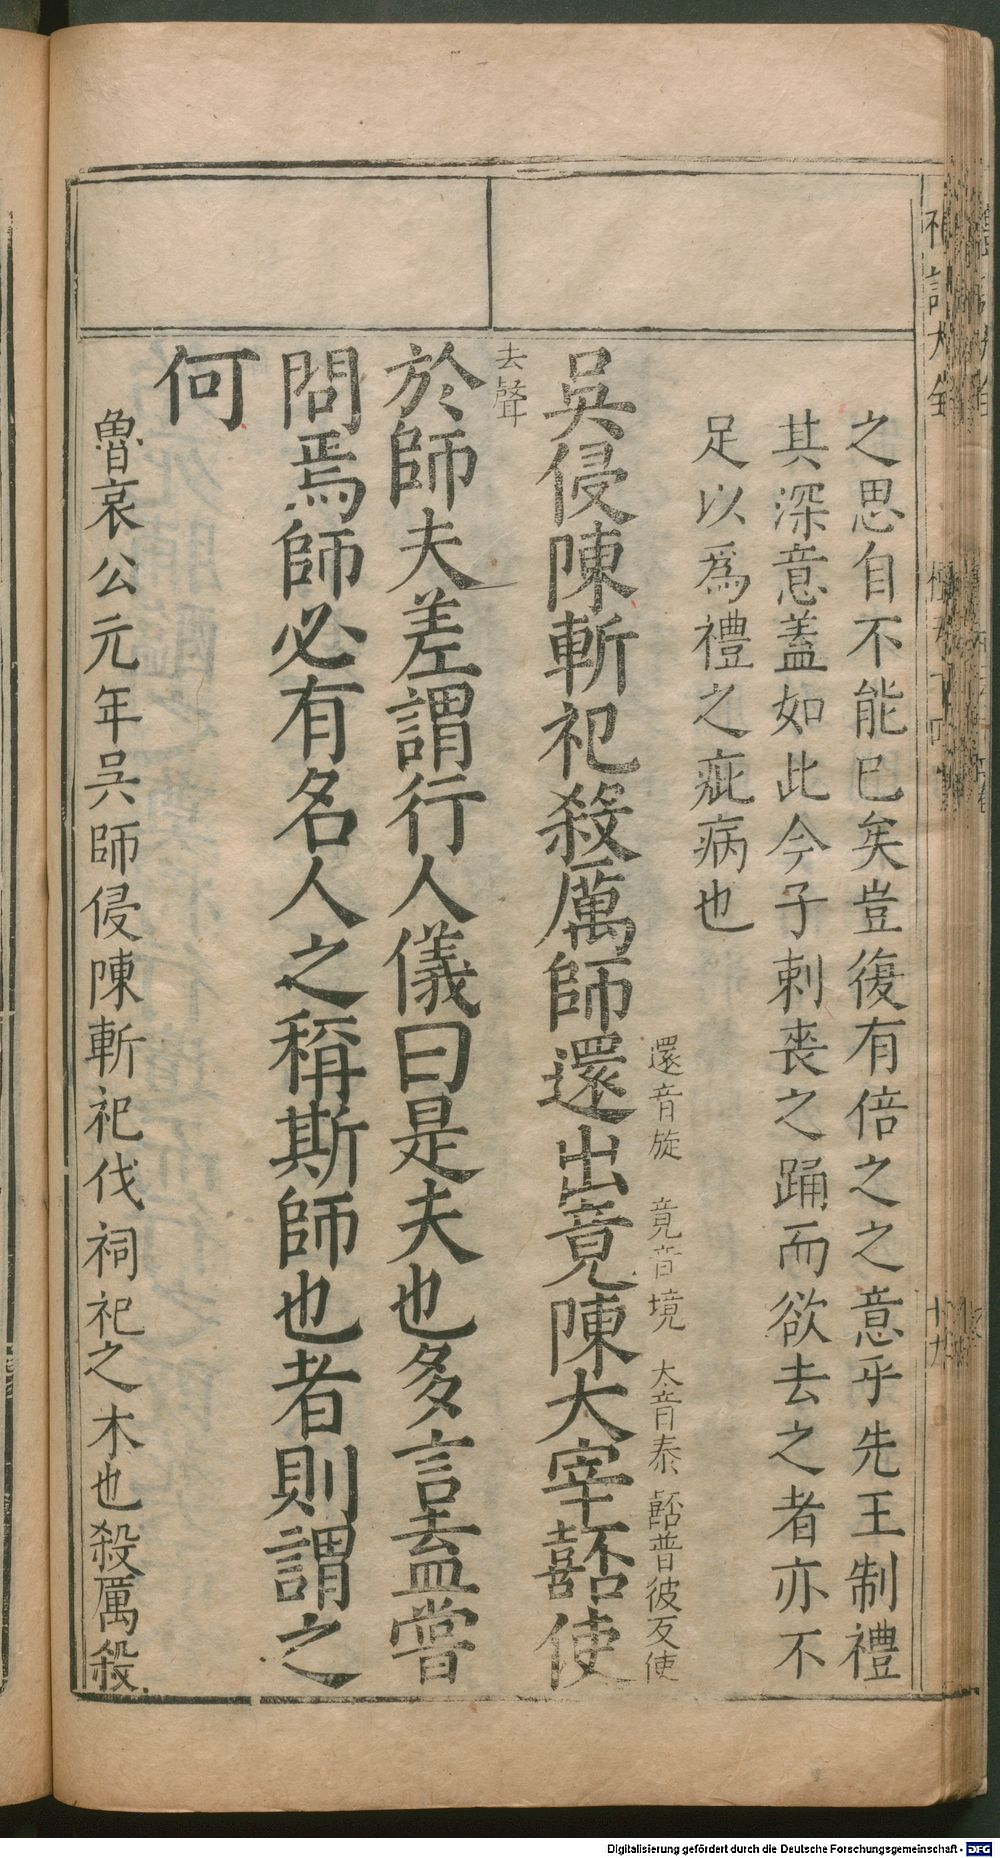 之思自不能已矣豈復有倍之之意乎先王制禮
其深意蓋如此今子刺喪之踊而欲去之者亦不
足以爲禮之疵病也
還音旋 竟音境 大音泰 嚭普彼反使
吳侵陳斬祀殺厲師還出竟陳大宰嚭使
去聲
於師夫差謂行人儀曰是夫也多言盍嘗
問焉師必有名人之稱斯師也者則謂之
何
魯哀公元年吳師侵陳斬祀伐祠祀之木也殺厲殺
十九
Digitalisierung gefördert durch die Deutsche Forschungsgemeinschaft - DFG